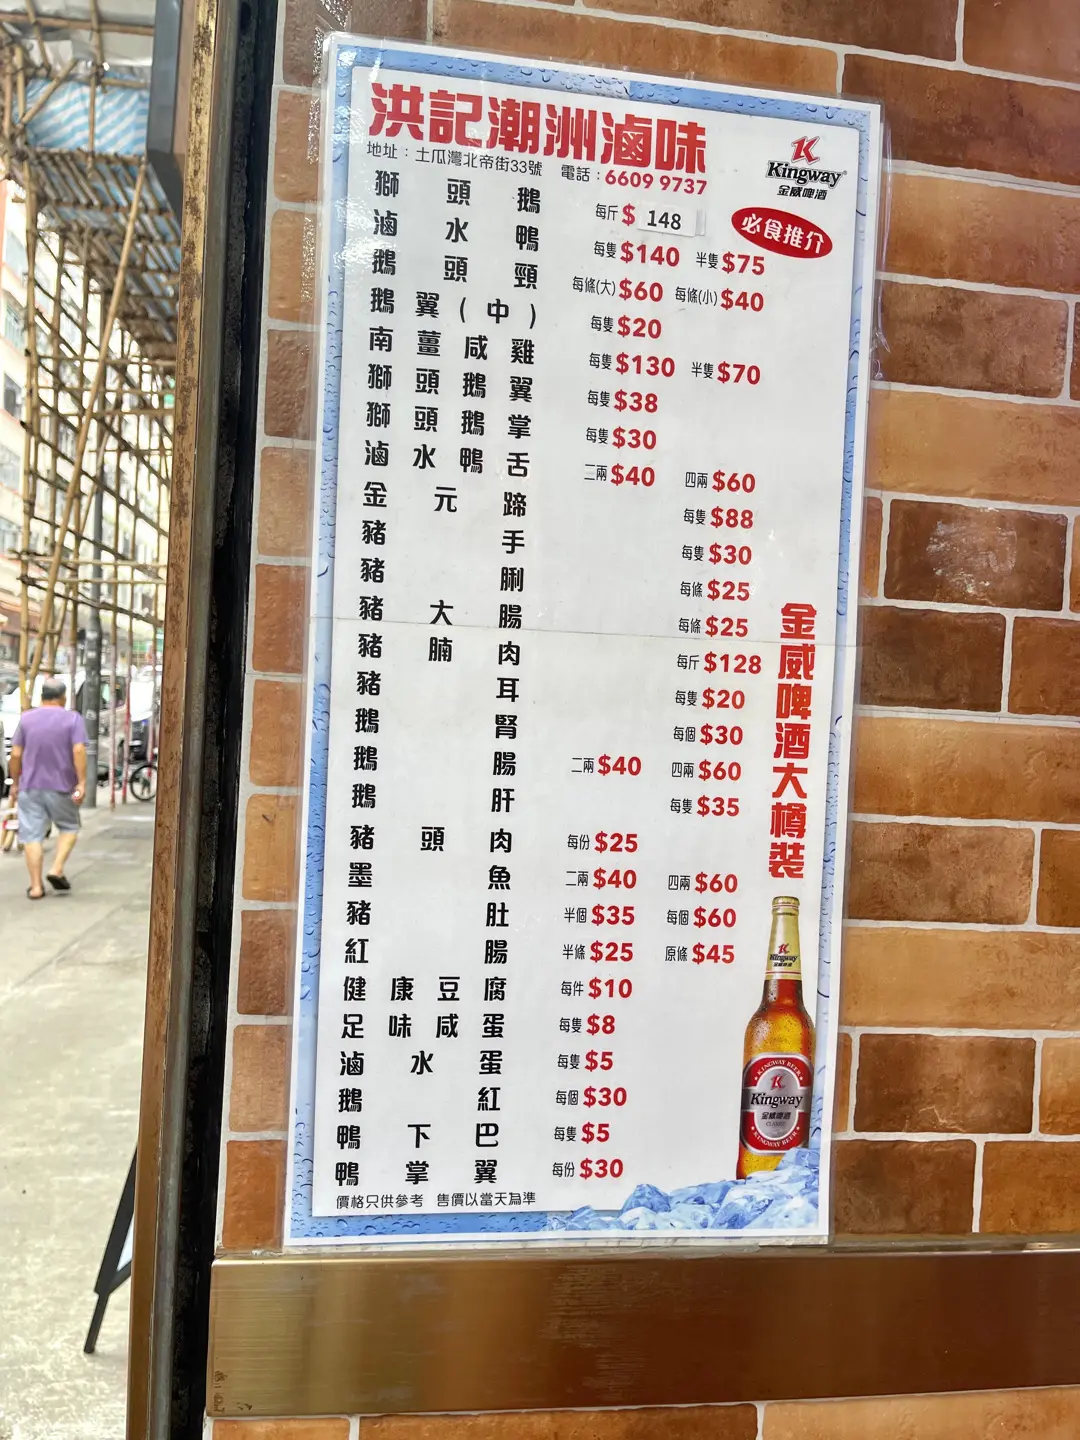 洪記潮洲滷味
地址：土瓜灣北帝街33號 電話：6609 9737
Kingway
金威啤酒
必食推介
獅頭鵝 每斤 $ 148
滷水鴨 每隻 $140 半隻 $75
鵝頭頸 每條(大) $60 每條(小) $40
鵝翼(中) 每隻 $20
南薑咸雞 每隻 $130 半隻 $70
獅頭鵝翼 每隻 $38
獅頭鵝掌 每隻 $30
滷水鴨舌 二兩 $40 四兩 $60
金元蹄 每隻 $88
豬手 每隻 $30
豬脷 每條 $25
豬大腸 每條 $25
豬腩肉 每斤 $128
豬耳 每隻 $20
鵝腎 每個 $30
鵝腸 二兩 $40 四兩 $60
鵝肝 每隻 $35
豬頭肉 每份 $25
墨魚 二兩 $40 四兩 $60
豬肚 半個 $35 每個 $60
紅腸 半條 $25 原條 $45
健康豆腐 每件 $10
足味咸蛋 每隻 $8
滷水蛋 每隻 $5
鵝紅 每個 $30
鴨下巴 每隻 $5
鴨掌翼 每份 $30
價格只供參考 售價以當天為準
金威啤酒大樽裝
Kingway
KINGWAY BEER
Kingway
金威啤酒
CLASSIC
KINGWAY BEER